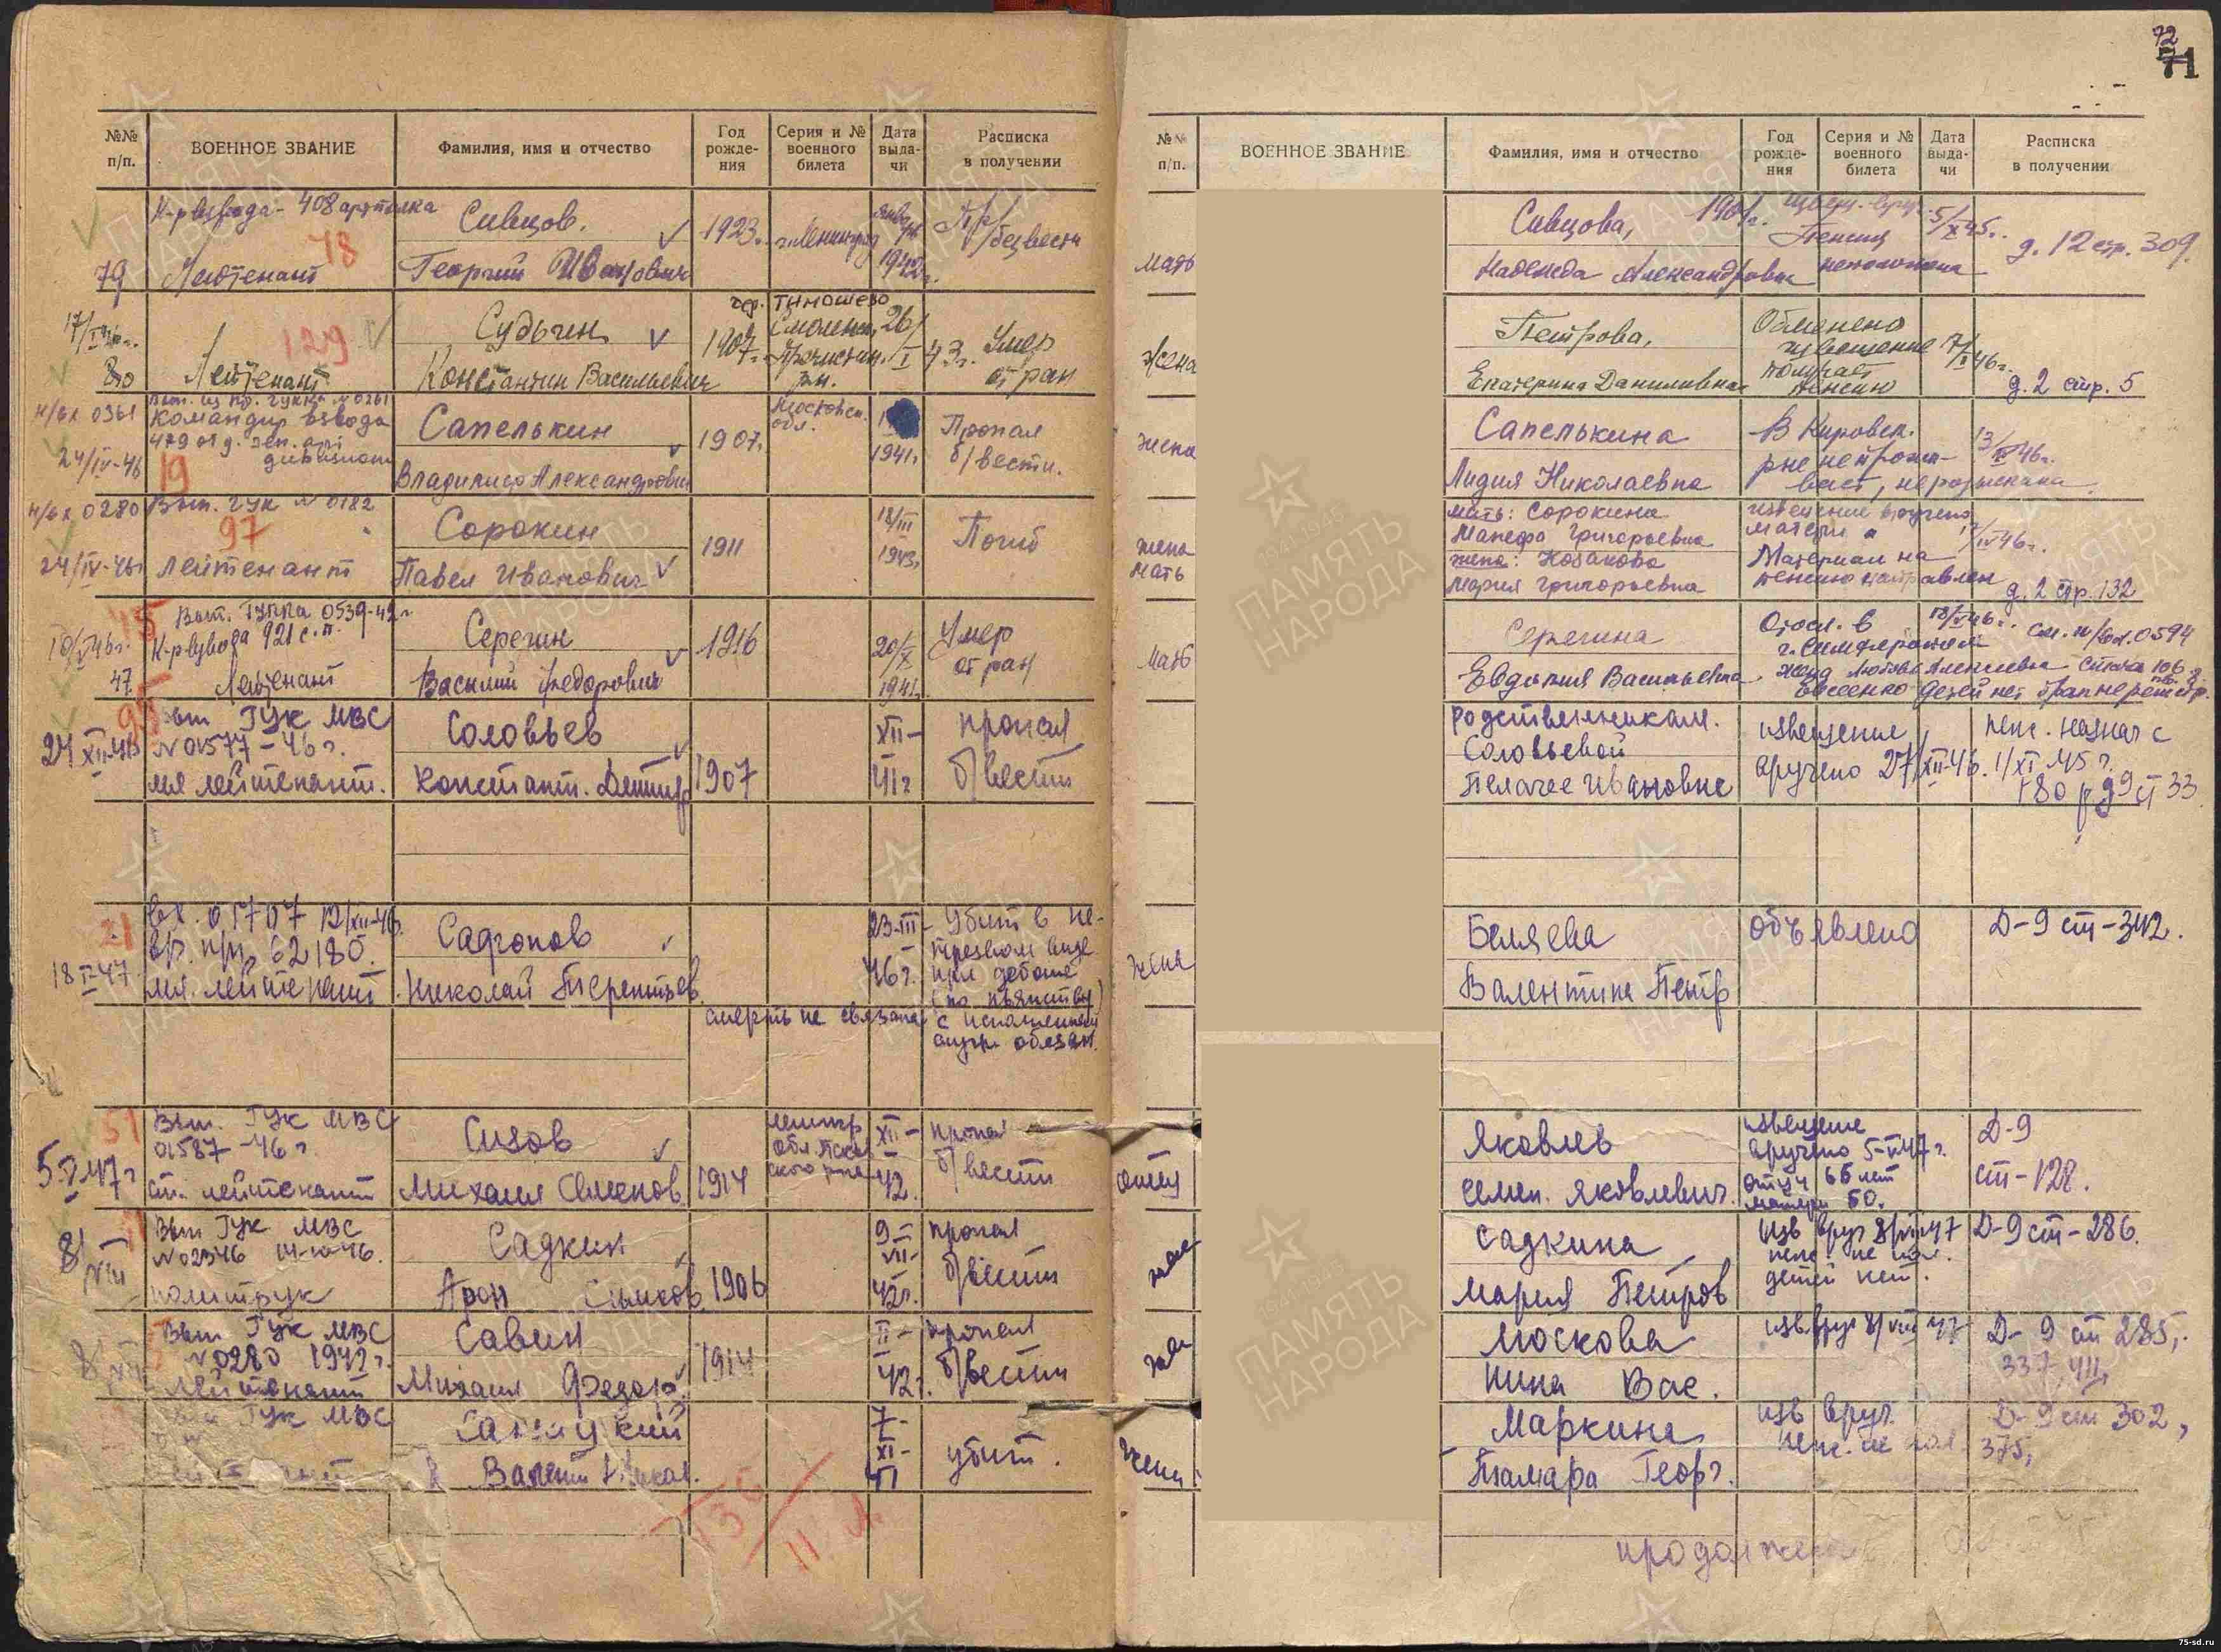 72
71
№№ п/п.
ВОЕННОЕ ЗВАНИЕ
Фамилия, имя и отчество
Год рожде-ния
Серия и № военного билета
Дата выда-чи
Расписка в получении
К-р взвода - 408 артполка
78
79
Лейтенант
Сивцов.
Георгий Иванович
1923г.
г. Ленинград
январь
1942г.
Пр/
б/безвести
17/
129
80
Лейтенант
Судьгин
Константин Васильевич
1907г.
дер. Тимошево
Смоленск.
рн.
26/I 43г.
Умер
от ран
н/вх 0361
24/IV-46
Командир взвода
479 от д. зен. арт
дивизион
19
Сапелькин
Владимир Александрович
1907г.
Московск.
обл.
1941г.
Пропал
б/вести.
н/вх 0280
Вып. ГУК № 0182
97
24/IV-46г
лейтенант
Сорокин
Павел Иванович
1911
18/III
1943г.
Погиб
Вып. ГУППА 0539-42г
К-р взвода 921 с.п.
47
Лейтенант
Серегин
Василий Федорович
1916
20/X
1941г.
Умер
от ран
95
24 XII-46
Вып ГУК МВС
№ 01577-46 г.
мл лейтенант.
Соловьев
Констант. Дмитр
1907
XII-
41г
пропал
б/вести
21
18 II-47
вх. 01707 12/XII-46.
вр. п/п, 62180.
мл. лейтенант
Сафронов
Николай Терентьев.
23-III-
46г.
Убит в не-
трезвом виде
при дебоше
(по пьянству)
смерть не связана с исполнением
служ. обязан.
51
5-V-47г
Вып. ГУК МВС
01587-46 г
ст. лейтенант
Сизов
Михаил Семенов.
1914
ленингр
обл. Псков
ского р-на
XII-
42.
пропал
б/вести
8/VIII
Вып ГУК МВС
№ 02346 14-10-46.
политрук
Садкин
Арон
1906
9-
VII-
42г.
пропал
б/вести
8/VIII
Вып ГУК МВС
№ 0280 1942 г.
лейтенант
Савин
Михаил Федор.
1914
II-
42г.
пропал
б/вести
ГУК МВС
Валент
7-
XI-
41
убит.
№№ п/п.
ВОЕННОЕ ЗВАНИЕ
Фамилия, имя и отчество
Год рожде-ния
Серия и № военного билета
Дата выда-чи
Расписка в получении
мать
Сивцова, 1901г.
Надежда Александровна
извещ. вруч.
Пенсия
неположена
5/X 45г.
д. 12 стр. 309.
жена
Петрова,
Екатерина Даниловна
Обменено
извещение
Получает
пенсию
7/ 46г.
д. 2 стр. 5
жена
Сапелькина
Лидия Николаевна
В Кировск.
р-не не прожи-
вает, не розыскана.
13/ 46г.
жена
мать
мать: Сорокина
Манефа Григорьевна
жена: Козакова
Мария Григорьевна
извещение вручено
матери
Материал на
пенсию направлен
/IV 46г.
д. 2 стр. 132
мать
Серегина
Евдокия Васильевна
Отосл. в
г. Симферополь
18/ 46г.
см. н/вх. 0594
жена Любовь Алексеевна
Евсеенко детей нет брак не регистр.
родственникам.
Соловьевой
Пелагее Ивановне
извещение
вручено 27/XII-46.
пенс. назнач с
1/XI 45 г.
180 р д 9 ст 33
жена
Беляева
Валентина Петр
объявлено
Д-9 ст-342.
отец
Яковлев
Семен. Яковлевич.
извещение
вручено 5-V-47г.
отцу 65 лет
матери 50.
Д-9
ст-128.
жена
Садкина
Мария Петров
изв вруч 8/VIII 47
пенс не пол.
детей нет.
Д-9 ст-286.
жена
Москова
Нина Вас.
изв. вруч 8/VIII 47
Д-9 ст 285,
337, 411,
жена
Маркина
Тамара Георг.
изв вруч.
пенс. не пол.
Д-9 ст 302,
375,
ПАМЯТЬ
НАРОДА
75-sd.ru